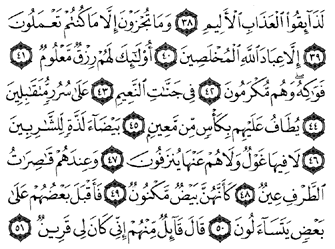 لَذَآئِقُوا۟ ٱلْعَذَابِ ٱلْأَلِيمِ ٣٨ وَمَا تُجْزَوْنَ إِلَّا مَا كُنتُمْ تَعْمَلُونَ
٣٩ إِلَّا عِبَادَ ٱللَّهِ ٱلْمُخْلَصِينَ ٤٠ أُو۟لَٰٓئِكَ لَهُمْ رِزْقٌ مَّعْلُومٌ ٤١
فَوَٰكِهُ وَهُم مُّكْرَمُونَ ٤٢ فِى جَنَّٰتِ ٱلنَّعِيمِ ٤٣ عَلَىٰ سُرُرٍ مُّتَقَٰبِلِينَ
٤٤ يُطَافُ عَلَيْهِم بِكَأْسٍ مِّن مَّعِينٍۭ ٤٥ بَيْضَآءَ لَذَّةٍ لِّلشَّٰرِبِينَ
٤٦ لَا فِيهَا غَوْلٌ وَلَا هُمْ عَنْهَا يُنزَفُونَ ٤٧ وَعِندَهُمْ قَٰصِرَٰتُ
ٱلطَّرْفِ عِينٌ ٤٨ كَأَنَّهُنَّ بَيْضٌ مَّكْنُونٌ ٤٩ فَأَقْبَلَ بَعْضُهُمْ عَلَىٰ
بَعْضٍ يَتَسَآءَلُونَ ٥٠ قَالَ قَآئِلٌ مِّنْهُمْ إِنِّى كَانَ لِى قَرِينٌ ٥١